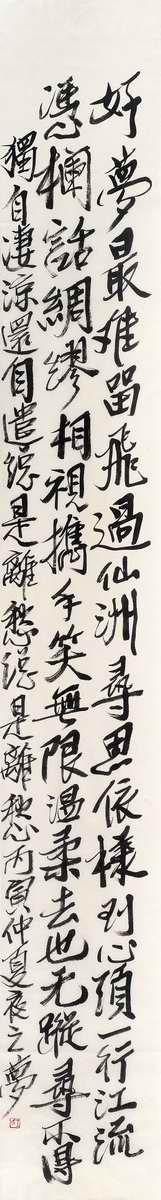 好夢最难留飛過仙洲尋思依樣到心頭一行江流
憑欄話綢繆相視攜手笑無限温柔去也无蹤尋不得
獨自凄涼還自遣總是離愁總是離愁丙寅仲夏夜之夢